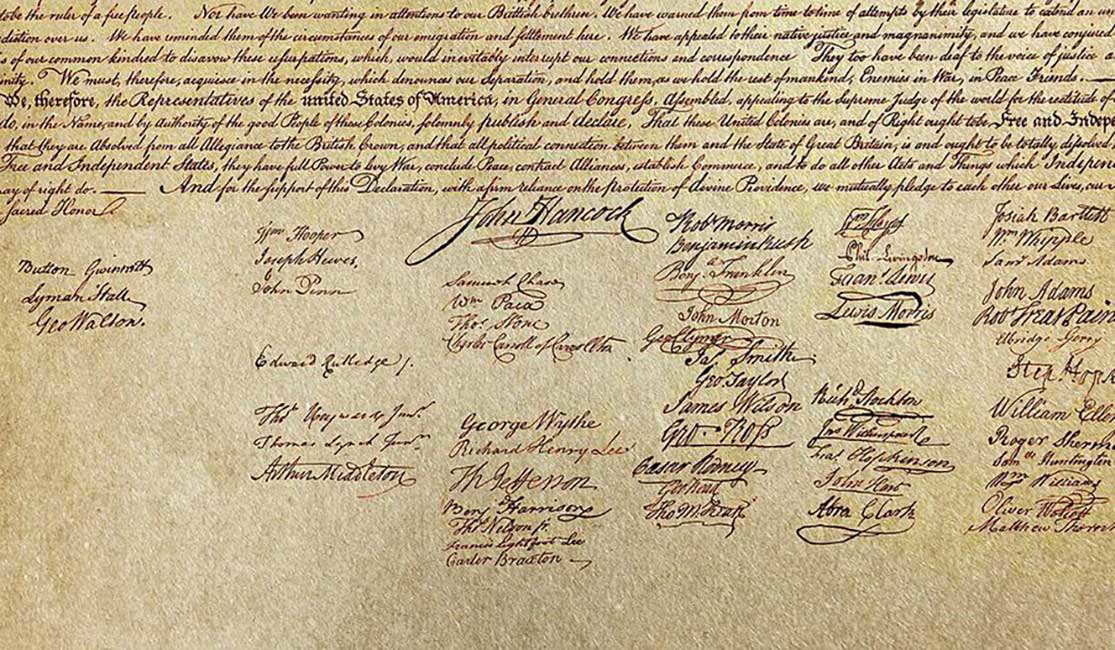 to be the ruler of a free people. Nor have We been wanting in attentions to our Brittish brethren. We have warned them from time to time of attempts by their legislature to extend an
diction over us. We have reminded them of the circumstances of our emigration and settlement here. We have appealed to their native justice and magnanimity, and we have conjured
of our common kindred to disavow these usurpations, which, would inevitably interrupt our connections and correspondence They too have been deaf to the voice of justice
inity. We must, therefore, acquiesce in the necessity, which denounces our Separation, and hold them, as we hold the rest of mankind, Enemies in War, in Peace Friends.
We, therefore, the Representatives of the united States of America, in General Congress, Assembled, appealing to the Supreme Judge of the world for the rectitude of
do, in the Name, and by Authority of the good People of these Colonies, solemnly publish and declare, That these United Colonies are, and of Right ought to be Free and Indepe
that they are Absolved from all Allegiance to the British Crown, and that all political connection between them and the State of Great Britain, is and ought to be totally dissolved
Free and Independent States, they have full Power to levy War, conclude Peace, contract Alliances, establish Commerce, and to do all other Acts and Things which Indepen
ay of right do. And for the support of this Declaration, with a firm reliance on the protection of divine Providence, we mutually pledge to each other our Lives, our
Sacred Honor
Button Gwinnett
Lyman Hall
Geo Walton.
Wm Hooper
Joseph Hewes,
John Penn
Edward Rutledge /.
Thos Heyward Junr
Thomas Lynch Junr
Arthur Middleton
John Hancock
Samuel Chase
Wm Paca
Thos Stone
Charles Carroll of Carrollton
George Wythe
Richard Henry Lee
Th Jefferson
Benj Harrison
Thos Nelson jr
Francis Lightfoot Lee
Carter Braxton
Robt Morris
Benjamin Rush
Benj. Franklin
John Morton
Geo Clymer
Jas. Smith
Geo. Taylor
James Wilson
Geo. Ross
Caesar Rodney
Geo Read
Tho M:Kean
Wm Floyd
Phil. Livingston
Frans. Lewis
Lewis Morris
Richd. Stockton
Jno Witherspoon
Fras. Hopkinson
John Hart
Abra Clark
Josiah Bartlett
Wm. Whipple
Saml Adams
John Adams
Robt Treat Pain
Elbridge Gerry
Step. Hopk
William Elle
Roger Sherm
Saml Huntington
Wm. Williams
Oliver Wolcott
Matthew Thorn